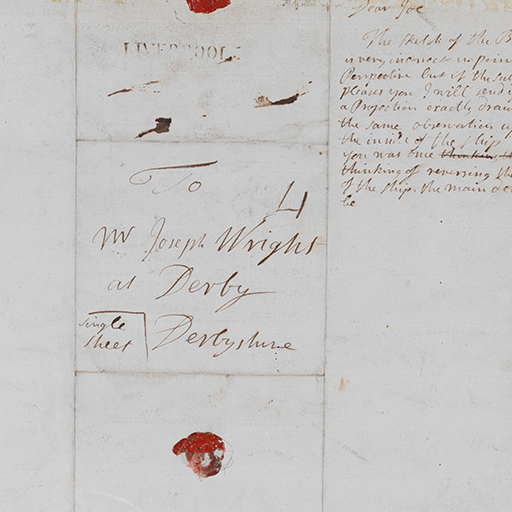 LIVERPOOL
To
4
Mr Joseph Wright
at Derby
single
sheet
Derbyshire
Dear Joe
The Sketch of the B
is very incorrect in poin
Perspective but if the
pleases you I will send
a Projection exactly draw
the same observation
the of the ship
you was once
thinking of reversing the
of the ship. the main
be